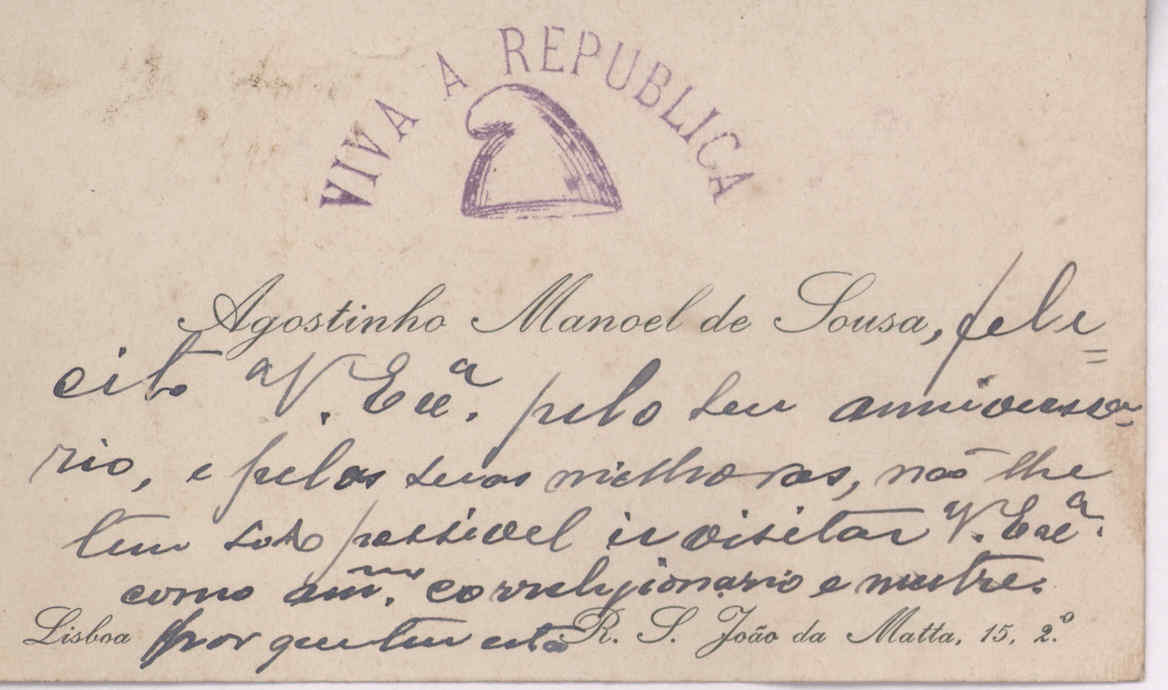 VIVA A REPUBLICA
Agostinho Manoel de Sousa, fele=
cito a V. Excª. pelo seu anniversa-
rio, e pelas suas milhoras, não lhe
tem sido possivel ir visitar V. Excª.
como am.º correlijionario e mestre.
Lisboa por que tem está R. S. João da Matta, 15, 2.º